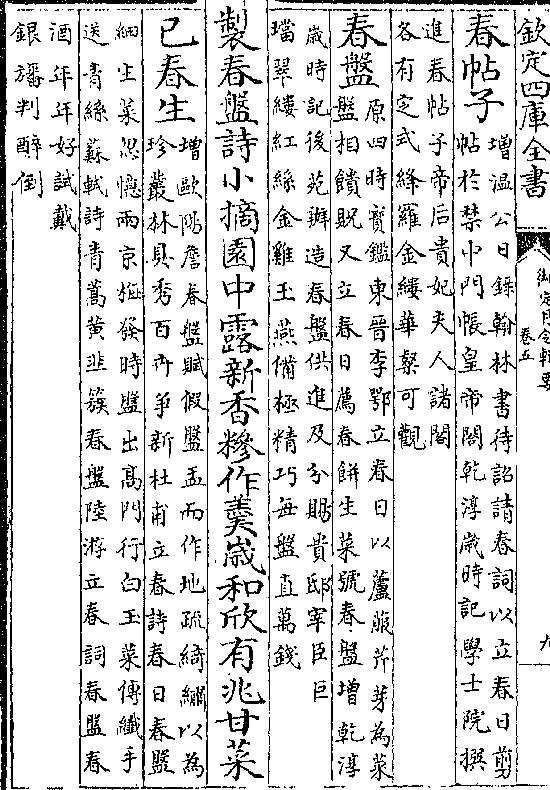 欽定四庫全書
御定月令輯要
卷五
九
春帖子
增温公日錄翰林書待詔請春詞以立春日剪
帖於禁中門帳皇帝閤乾淳歲時記學士院撰
進春帖子帝后貴妃夫人諸閤
各有定式絳羅金縷華粲可觀
春盤
原四時寳鑑東晉李鄂立春日以蘆菔芹芽為菜
盤相饋貺又立春日薦春餅生菜號春盤增乾淳
歲時記後苑辦造春盤供進及分賜貴邸宰臣巨
璫翠縷紅絲金雞玉燕備極精巧每盤直萬錢
製春盤詩小摘園中露新香糝作羮歲和欣有兆甘菜
已春生
增歐陽詹春盤賦假盤盂而作地疏綺繡以為
珍叢林具秀百卉争新杜甫立春詩春日春盤
細生菜忽憶兩京梅發時盤出髙門行白玉菜傳纖手
送青絲蘇軾詩青蒿黄韭簇春盤陸游立春詞春盤春
酒年年好試戴
銀旛判醉倒